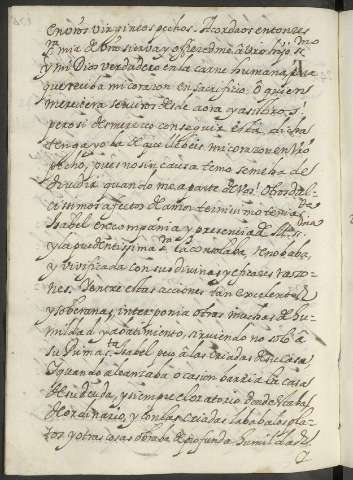 en vros virgineos pechos. Acordaos entonces
sra mia de vra sierva y ofrecedme a vro hijo smo
y mi Dios verdadero en la carne humana, para
que reciba mi coraçon en sacrificio. O quien
mereciera serviros desde aora y asistiros
pero si desmerezco conseguir esta dicha
tenga yo la de que lleveis mi coraçon en vro
pecho, pues no sin causa temo se me ha de
dividir quando me aparte de vos. Otros dul-
cissimos afectos de amor tiernissimo tenia sta
Isabel en compañia y presencia de Maria sma
y la prudentissima sra la consolaba, renobaba,
y vivificaba con sus divinas y eficaces raço-
nes. Y entre estas acciones tan excelentes
y soberanas, interponia otras muchas de hu-
mildad y abatimiento, sirviendo no solo a
su Prima sta Isabel pero a las criadas de su casa
Y quando alcançaba ocasion barria la casa
de su deuda, y siempre el oratorio donde estaba
de ordinario, y con las criadas lababa los pla-
tos y otras cosas obraba de profunda humildad